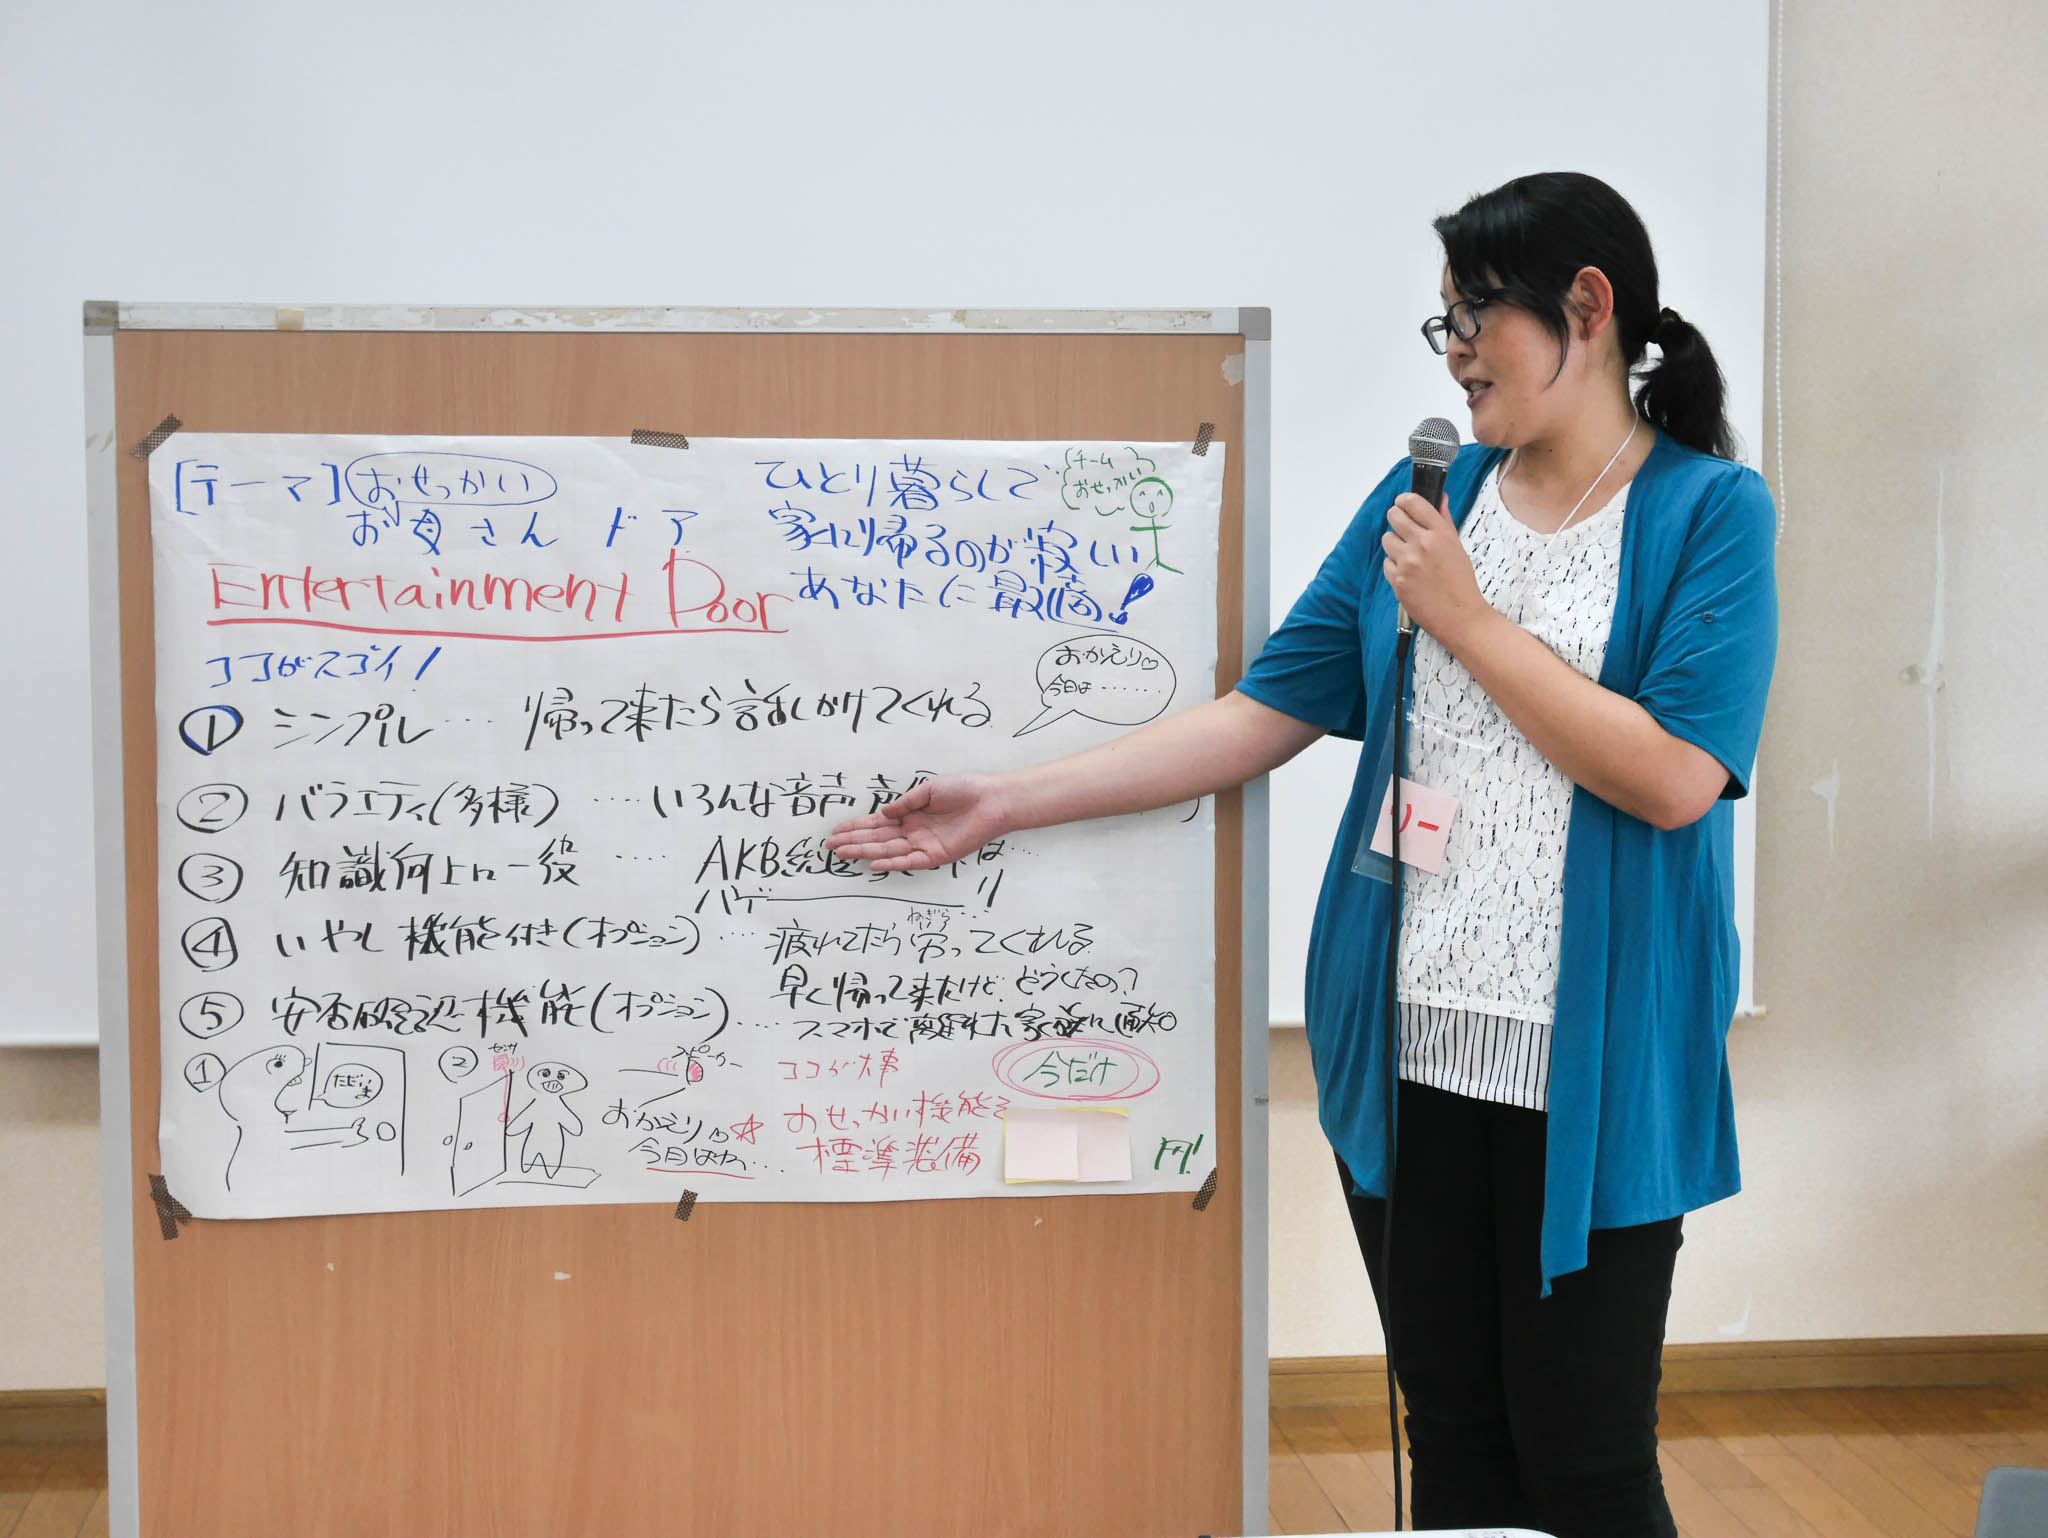 [テーマ] おせっかい
お母さん ドア
Entertainment Door
ひとり暮らしで
家に帰るのが寂しい
あなたに最適!
チーム
おせっかい
ココがスゴイ!
① シンプル… 帰って来たら話しかけてくれる
おかえり♡
今日は……
② バラエティ(多様) ……いろんな音声
③ 知識向上に一役 …… AKB総選
は…
④ いやし機能付き(オプション) …疲れてたら労ってくれる
ねぎら
⑤ 安否確認機能(オプション)…
早く帰って来たけど、どうしたの?
スマホで離れた家族に通知
①
ただいま
②
センサ
スピーカー
おかえり♡☆
今日はね…
ココが大事
おせっかい機能を
標準装備
今だけ
円!
リー